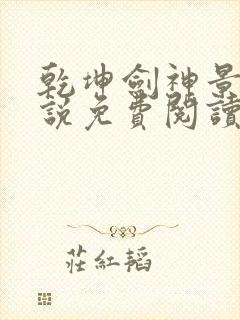 乾坤劍神景
説免費閱讀
莊紅韜